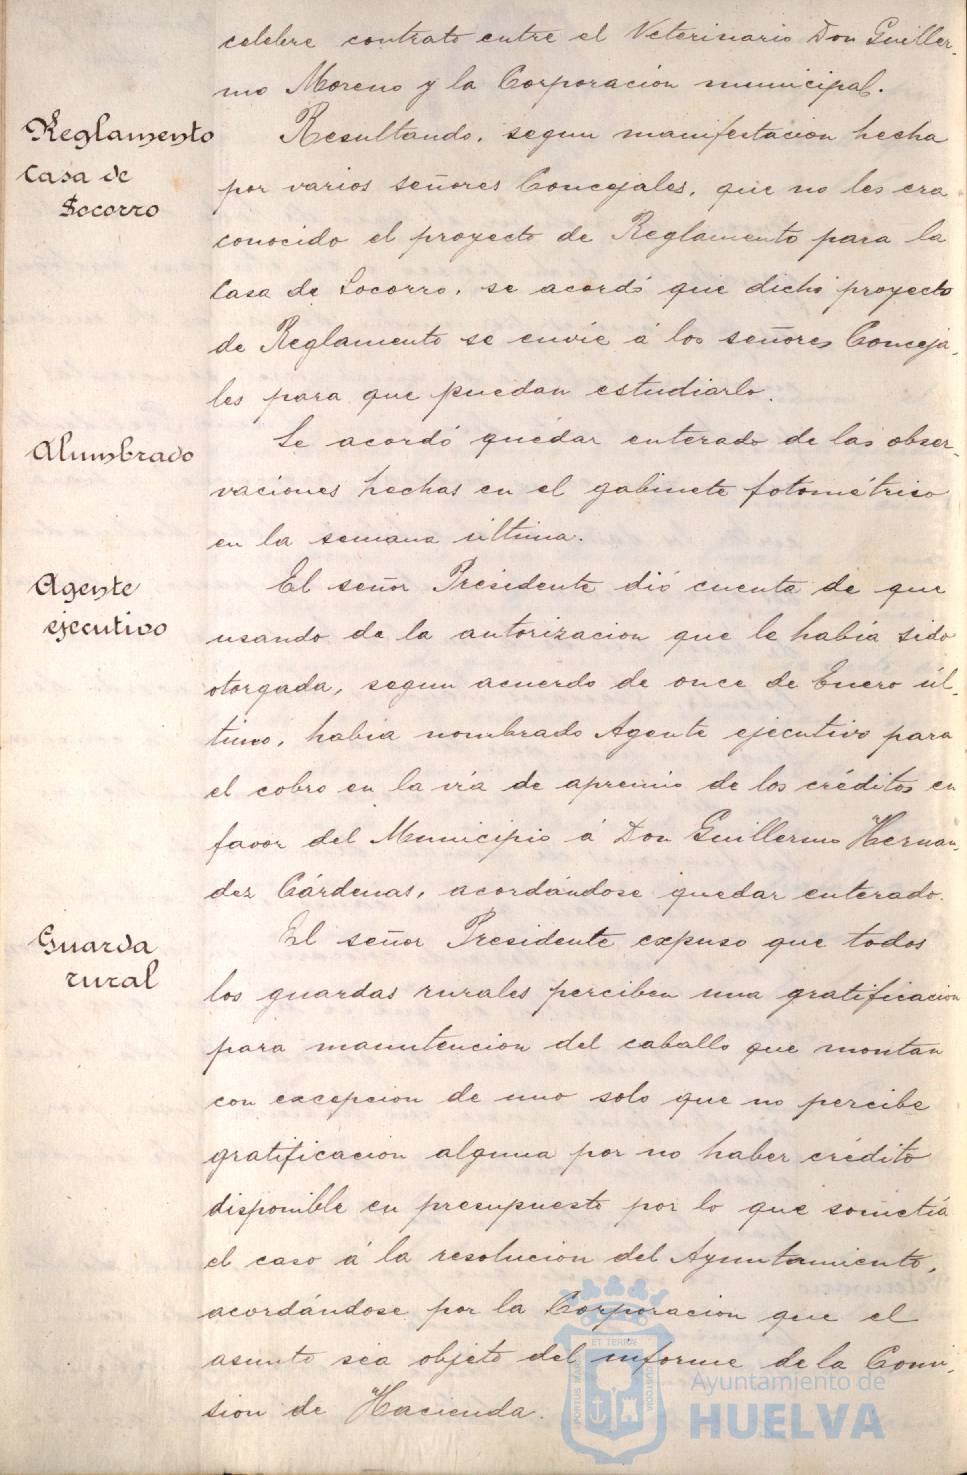 celebre contrato entre el Veterinario Don Guiller-
mo Moreno y la Corporación municipal.
Reglamento
Casa de
Socorro
Resultando, segun manifestacion hecha
por varios señores Concejales, que no les era
conocido el proyecto de Reglamento para la
Casa de Socorro, se acordó que dicho proyecto
de Reglamento se envie á los señores Conceja-
les para que puedan estudiarlo.
Alumbrado
Se acordó quedar enterado de las obser-
vaciones hechas en el gabinete fotométrico
en la semana última.
Agente
ejecutivo
El señor Presidente dió cuenta de que
usando de la autorizacion que le habia sido
otorgada, segun acuerdo de once de Enero úl-
timo, habia nombrado Agente ejecutivo para
el cobro en la vía de apremio de los créditos en
favor del Municipio á Don Guillermo Hernan-
dez Cárdenas, acordándose quedar enterado.
Guarda
rural
El señor Presidente expuso que todos
los guardas rurales perciben una gratificacion
para manutencion del caballo que montan
con excepcion de uno solo que no percibe
gratificacion alguna por no haber crédito
disponible en presupuesto por lo que sometía
el caso á la resolucion del Ayuntamiento,
acordándose por la Corporacion que el
asunto sea objeto del informe de la Comi-
sion de Hacienda.
ET TERRÆ
PORTUS MARIS
CUSTODIA
Ayuntamiento de
HUELVA